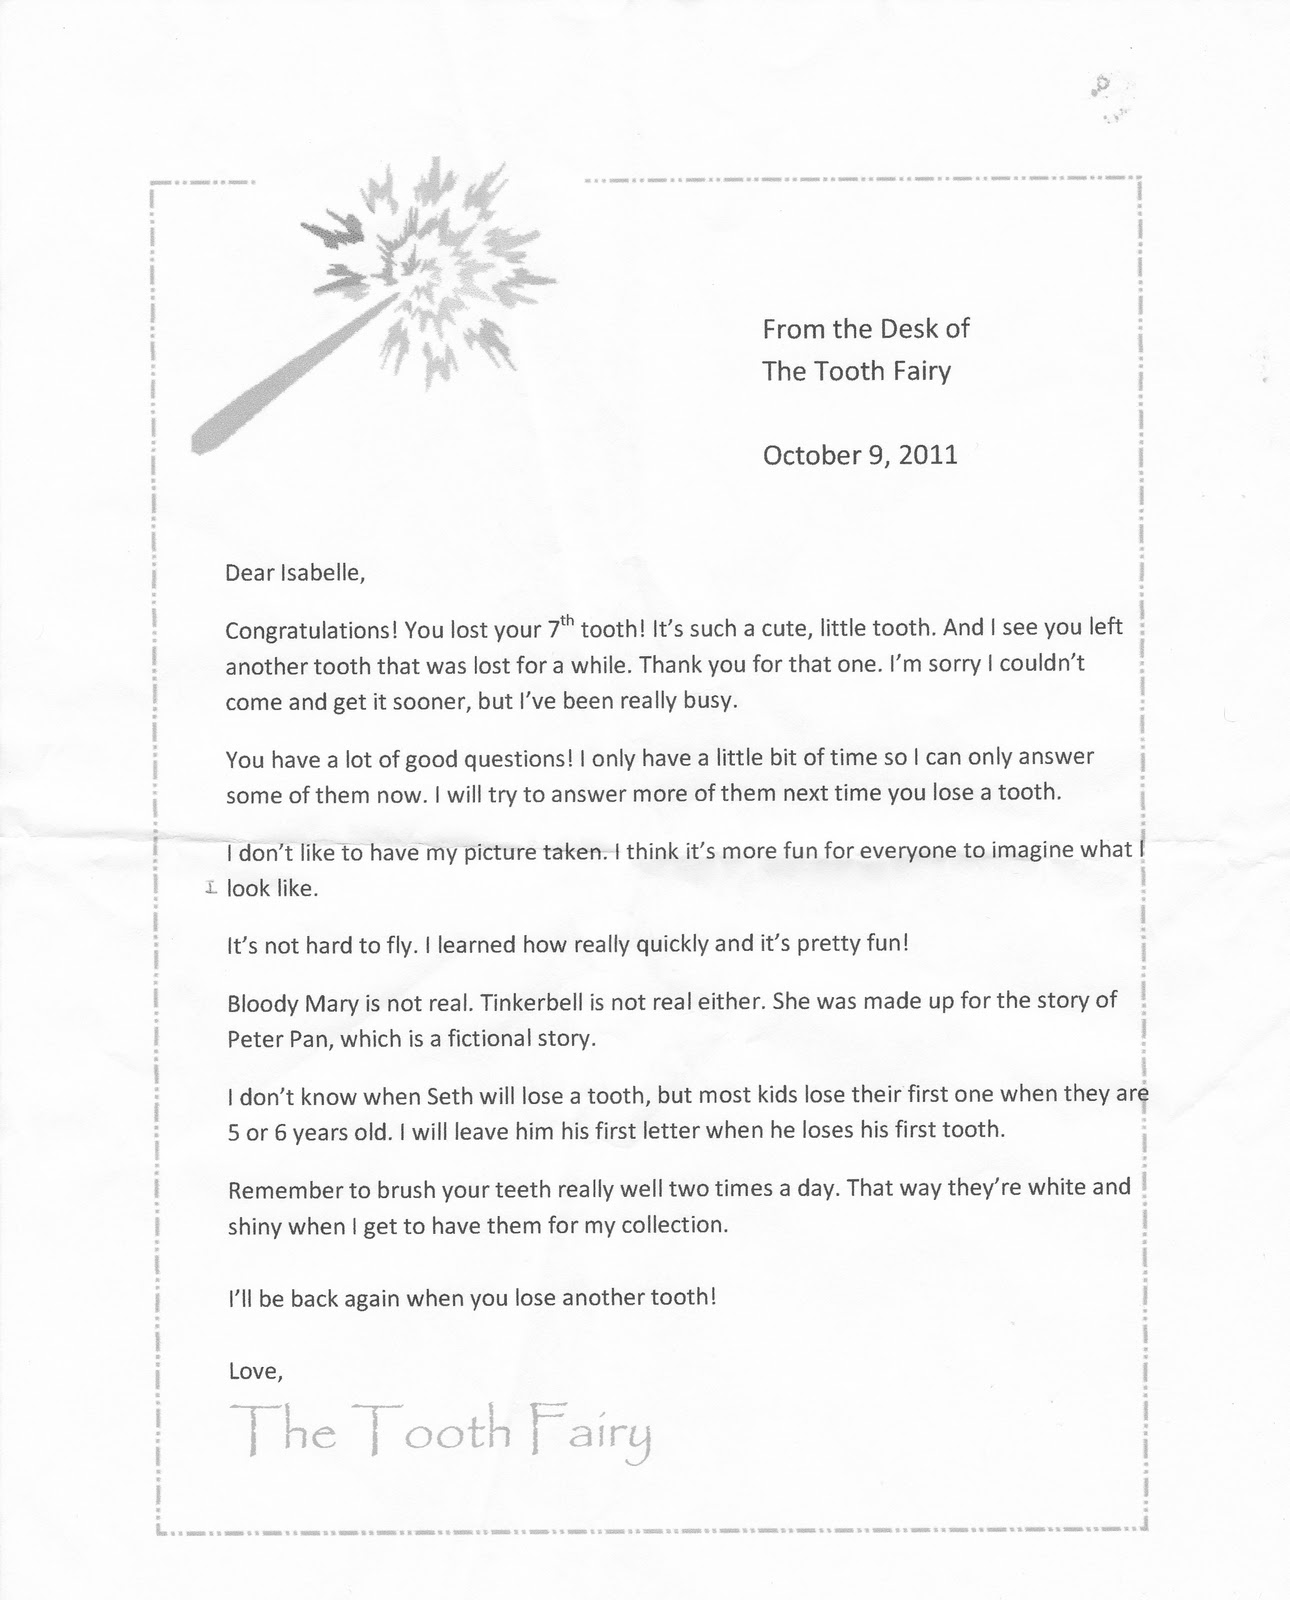 From the Desk of
The Tooth Fairy
October 9, 2011
Dear Isabelle,
Congratulations! You lost your 7th tooth! It's such a cute, little tooth. And I see you left
another tooth that was lost for a while. Thank you for that one. I'm sorry I couldn't
come and get it sooner, but I've been really busy.
You have a lot of good questions! I only have a little bit of time so I can only answer
some of them now. I will try to answer more of them next time you lose a tooth.
I don't like to have my picture taken. I think it's more fun for everyone to imagine what I
I look like.
It's not hard to fly. I learned how really quickly and it's pretty fun!
Bloody Mary is not real. Tinkerbell is not real either. She was made up for the story of
Peter Pan, which is a fictional story.
I don't know when Seth will lose a tooth, but most kids lose their first one when they are
5 or 6 years old. I will leave him his first letter when he loses his first tooth.
Remember to brush your teeth really well two times a day. That way they're white and
shiny when I get to have them for my collection.
I'll be back again when you lose another tooth!
Love,
The Tooth Fairy